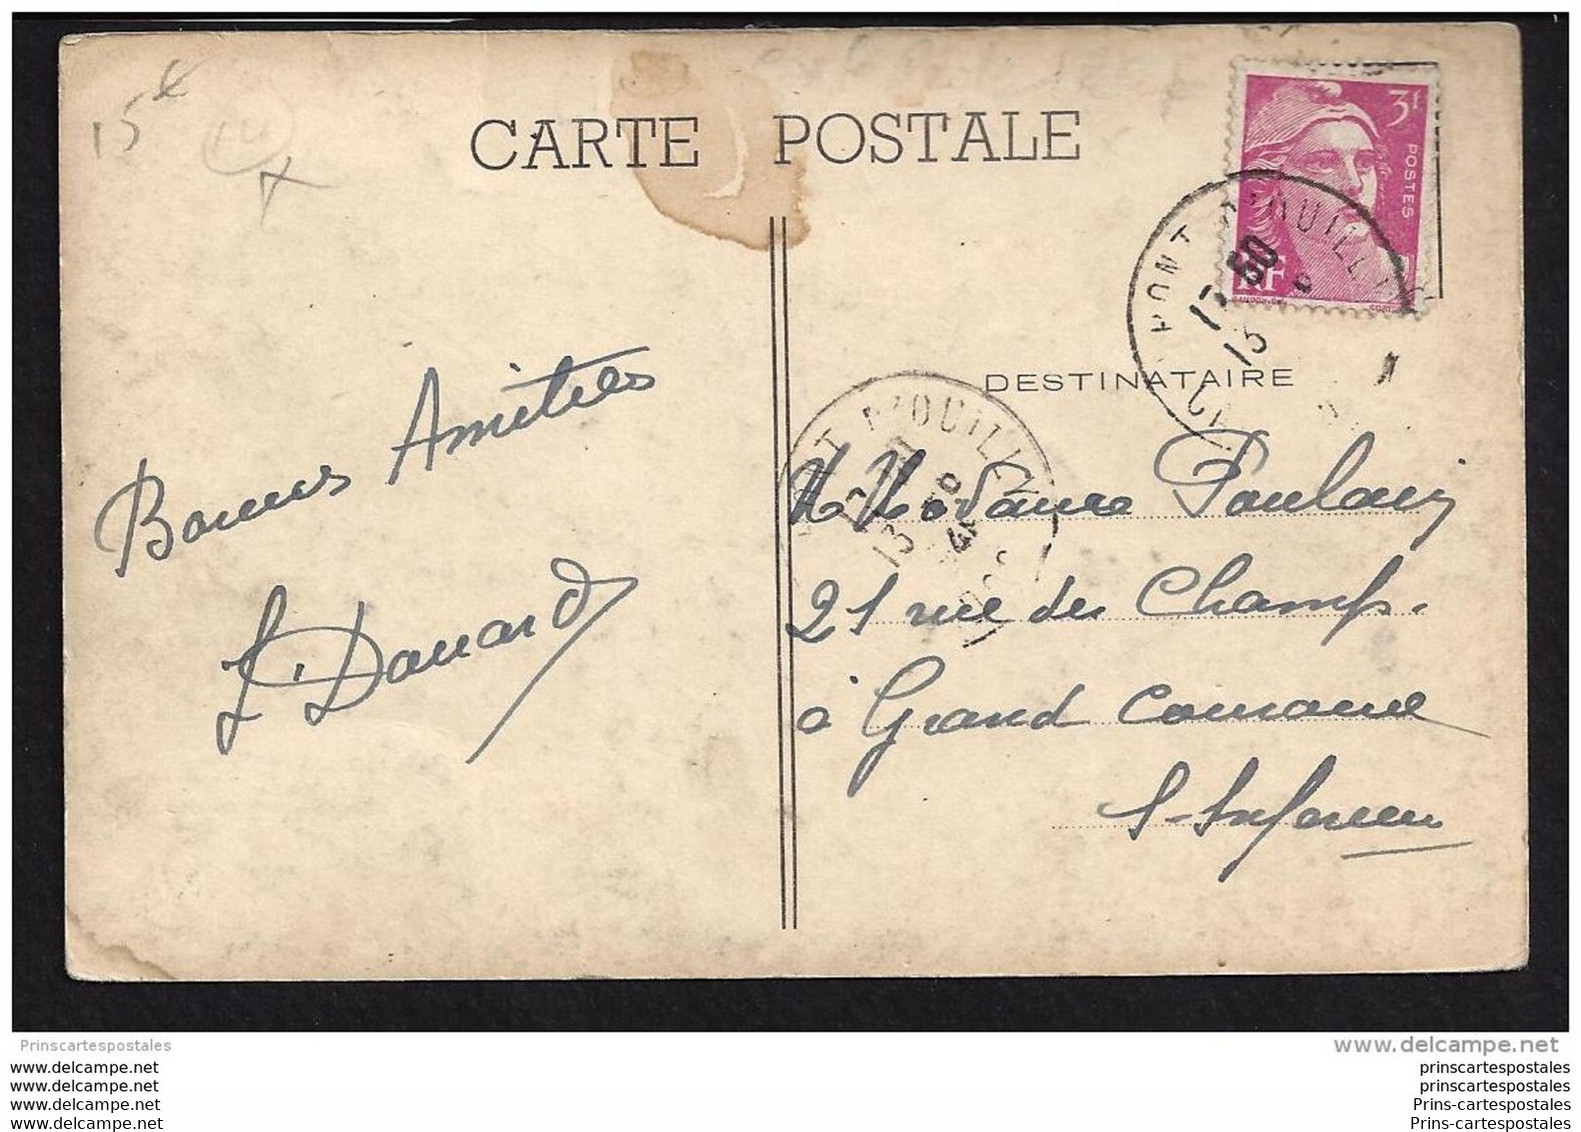 15
CARTE POSTALE
3F
POSTES
RF
PONT D'OUILLY
13
DESTINATAIRE
Bonnes Amitiés
L. Douard
PONT D'OUILLY
13
M Madame Poulain
21 rue des Champs
à Grand Couronne
S-Inférieure
Prinscartespostales
www.delcampe.net
www.delcampe.com
www.delcampe.com
www.delcampe.com
www.delcampe.com
prinscartespostales
prinscartespostales
Prins-cartespostales
Prins-cartespostales